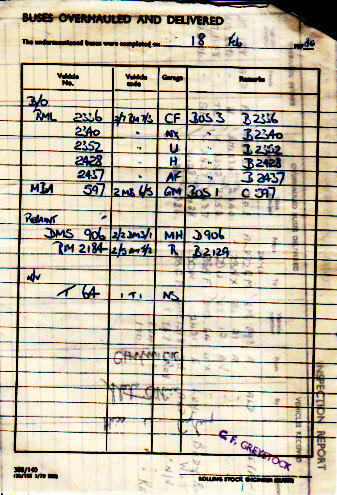 BUSES OVERHAULED AND DELIVERED
The undermentioned buses were completed on 18 Feb 1980
Vehicle No. Vehicle code Garage Remarks
B/O
RML 2336 2/7 RM 7/3 CF BOS 3 B2336
2340 " NX " B2340
2352 " U " B2352
2428 " H " B2428
2437 " AF " B2437
MBA 597 2 MB 6/5 GM BOS 1 C 597
REPAINT
DMS 906 2/2 DM 3/1 MH D906
RM 2184 R B2129
N/V
T 64 1 T 1 NS
INSPECTION REPORT
VEHICLES RECEIVED
C. F. GREYSTOCK
ROLLING STOCK ENGINEER (BUSES)
388/140